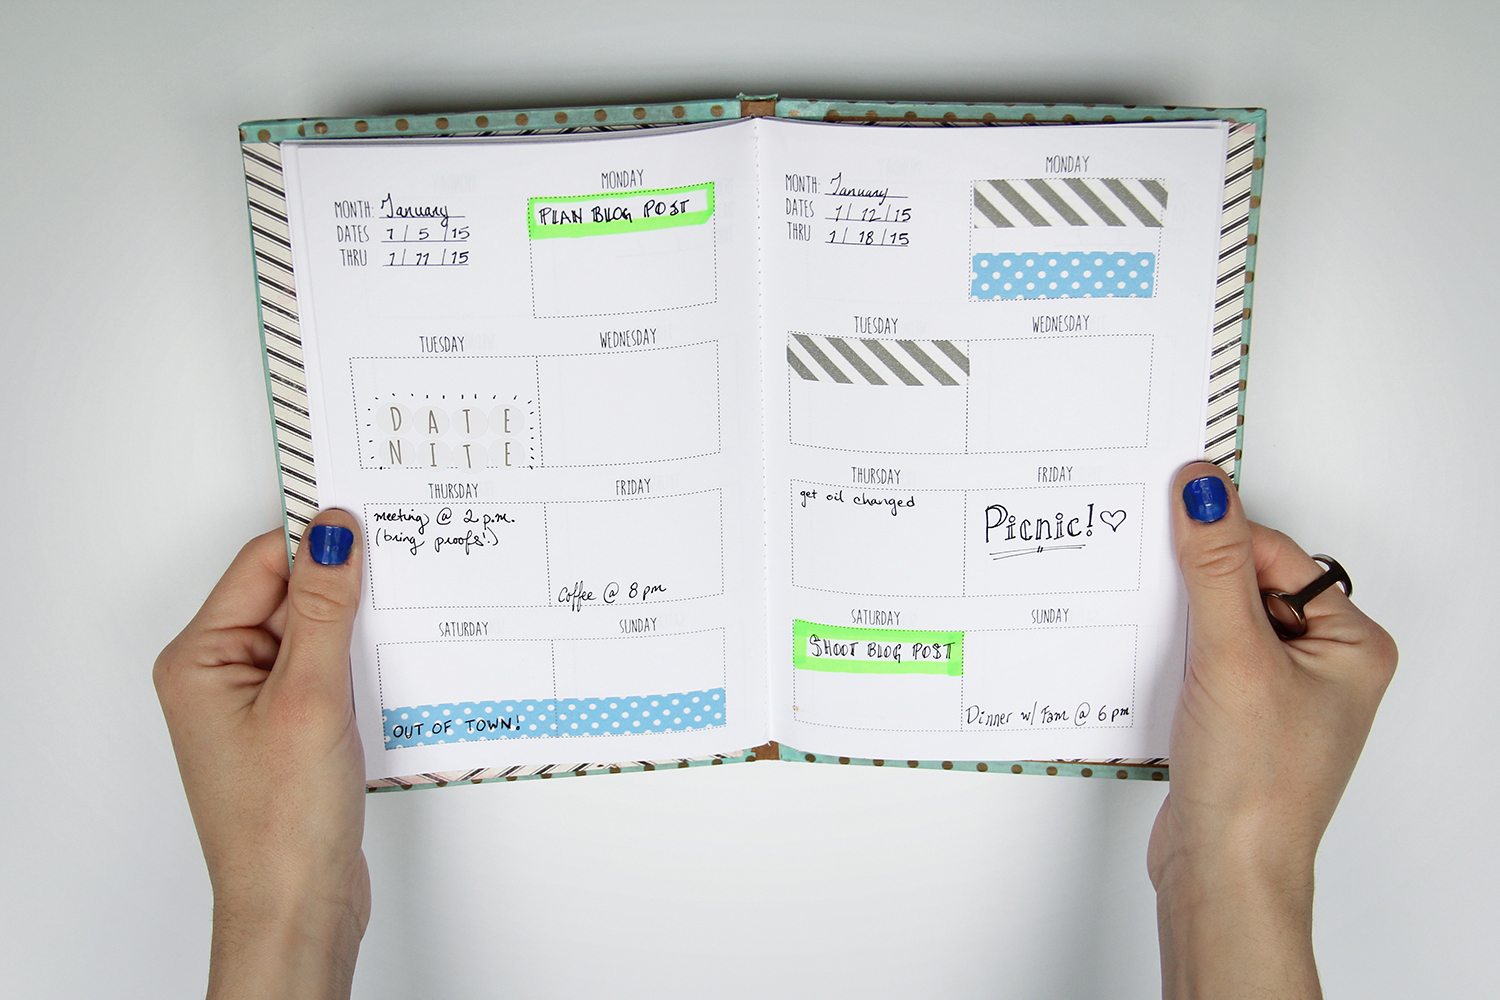 MONTH: January
DATES 1/5/15
THRU 1/11/15
MONDAY
PLAN BLOG POST
TUESDAY
DATE
NITE
WEDNESDAY
THURSDAY
meeting @ 2 p.m.
(bring proofs!)
FRIDAY
Coffee @ 8 pm
SATURDAY
SUNDAY
OUT OF TOWN!
MONTH: January
DATES 1/12/15
THRU 1/18/15
MONDAY
TUESDAY
WEDNESDAY
THURSDAY
get oil changed
FRIDAY
Picnic!
SATURDAY
SHOOT BLOG POST
SUNDAY
Dinner w/ Fam @ 6 pm